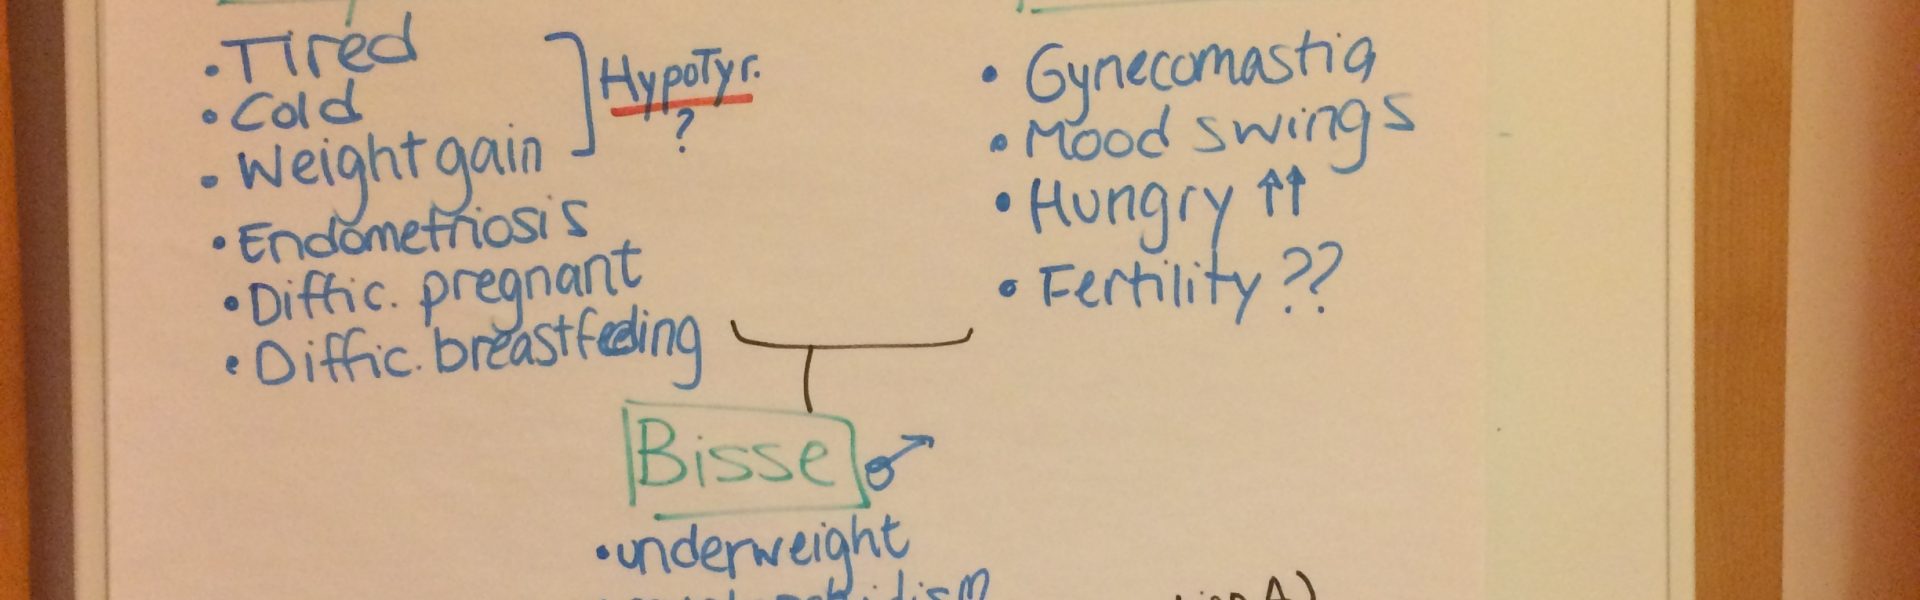 • Tired
• Cold
• Weight gain
] HypoTyr.
?
• Endometriosis
• Diffic. pregnant
• Diffic. breastfeeding
• Gynecomastia
• Mood swings
• Hungry ↑↑
• Fertility ??
Bisse ♂
• underweight